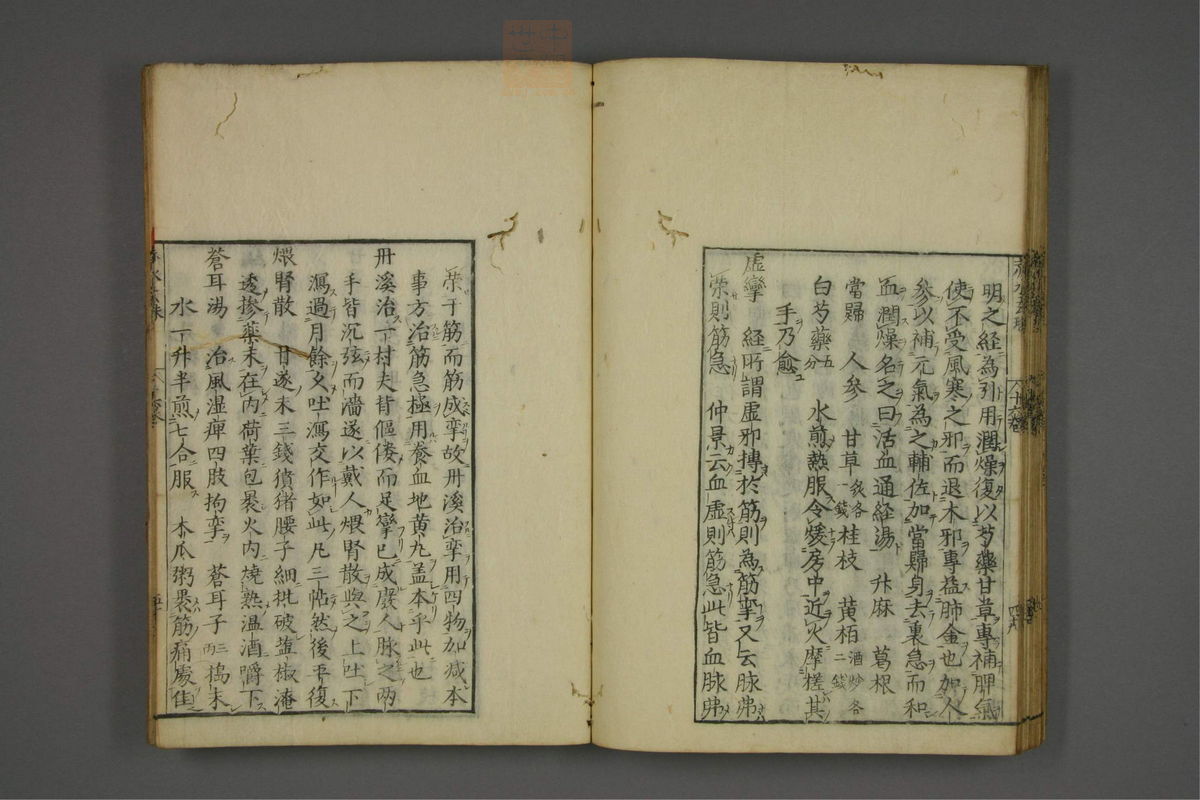 明之経為引用潤燥復以芍藥甘草專補脾氣
使不受風寒之邪而退木邪專益肺金也加人
參以補元氣為之輔佐加當歸身去裏急而和
血潤燥名之曰活血通経湯　升麻　葛根
當歸　人參　甘草炙各一錢　桂枝　黄栢酒炒各二錢
白芍藥五分　水煎熱服令煖房中近火摩搓其
手乃愈
虚攣　経所謂虚邪搏於筋則為筋攣又云脉弗
榮則筋急　仲景云血虚則筋急此皆血脉弗
榮于筋而筋成攣故丹溪治攣用四物加减本
事方治筋急極用養血地黄丸盖本乎此也
丹溪治一村夫背傴僂而足攣已成廢人脉之两
手皆沉弦而濇遂以戴人煨腎散與之上吐下
瀉過月餘又吐瀉交作如此凡三帖然後平復
煨腎散　甘遂末三錢豶猪腰子細批破塩椒淹
透摻藥末在内荷葉包裹火内燒熟温酒嚼下
蒼耳湯　治風湿痺四肢拘攣　蒼耳子三两搗末
水一升半煎七合服　木瓜粥裹筋痛處佳